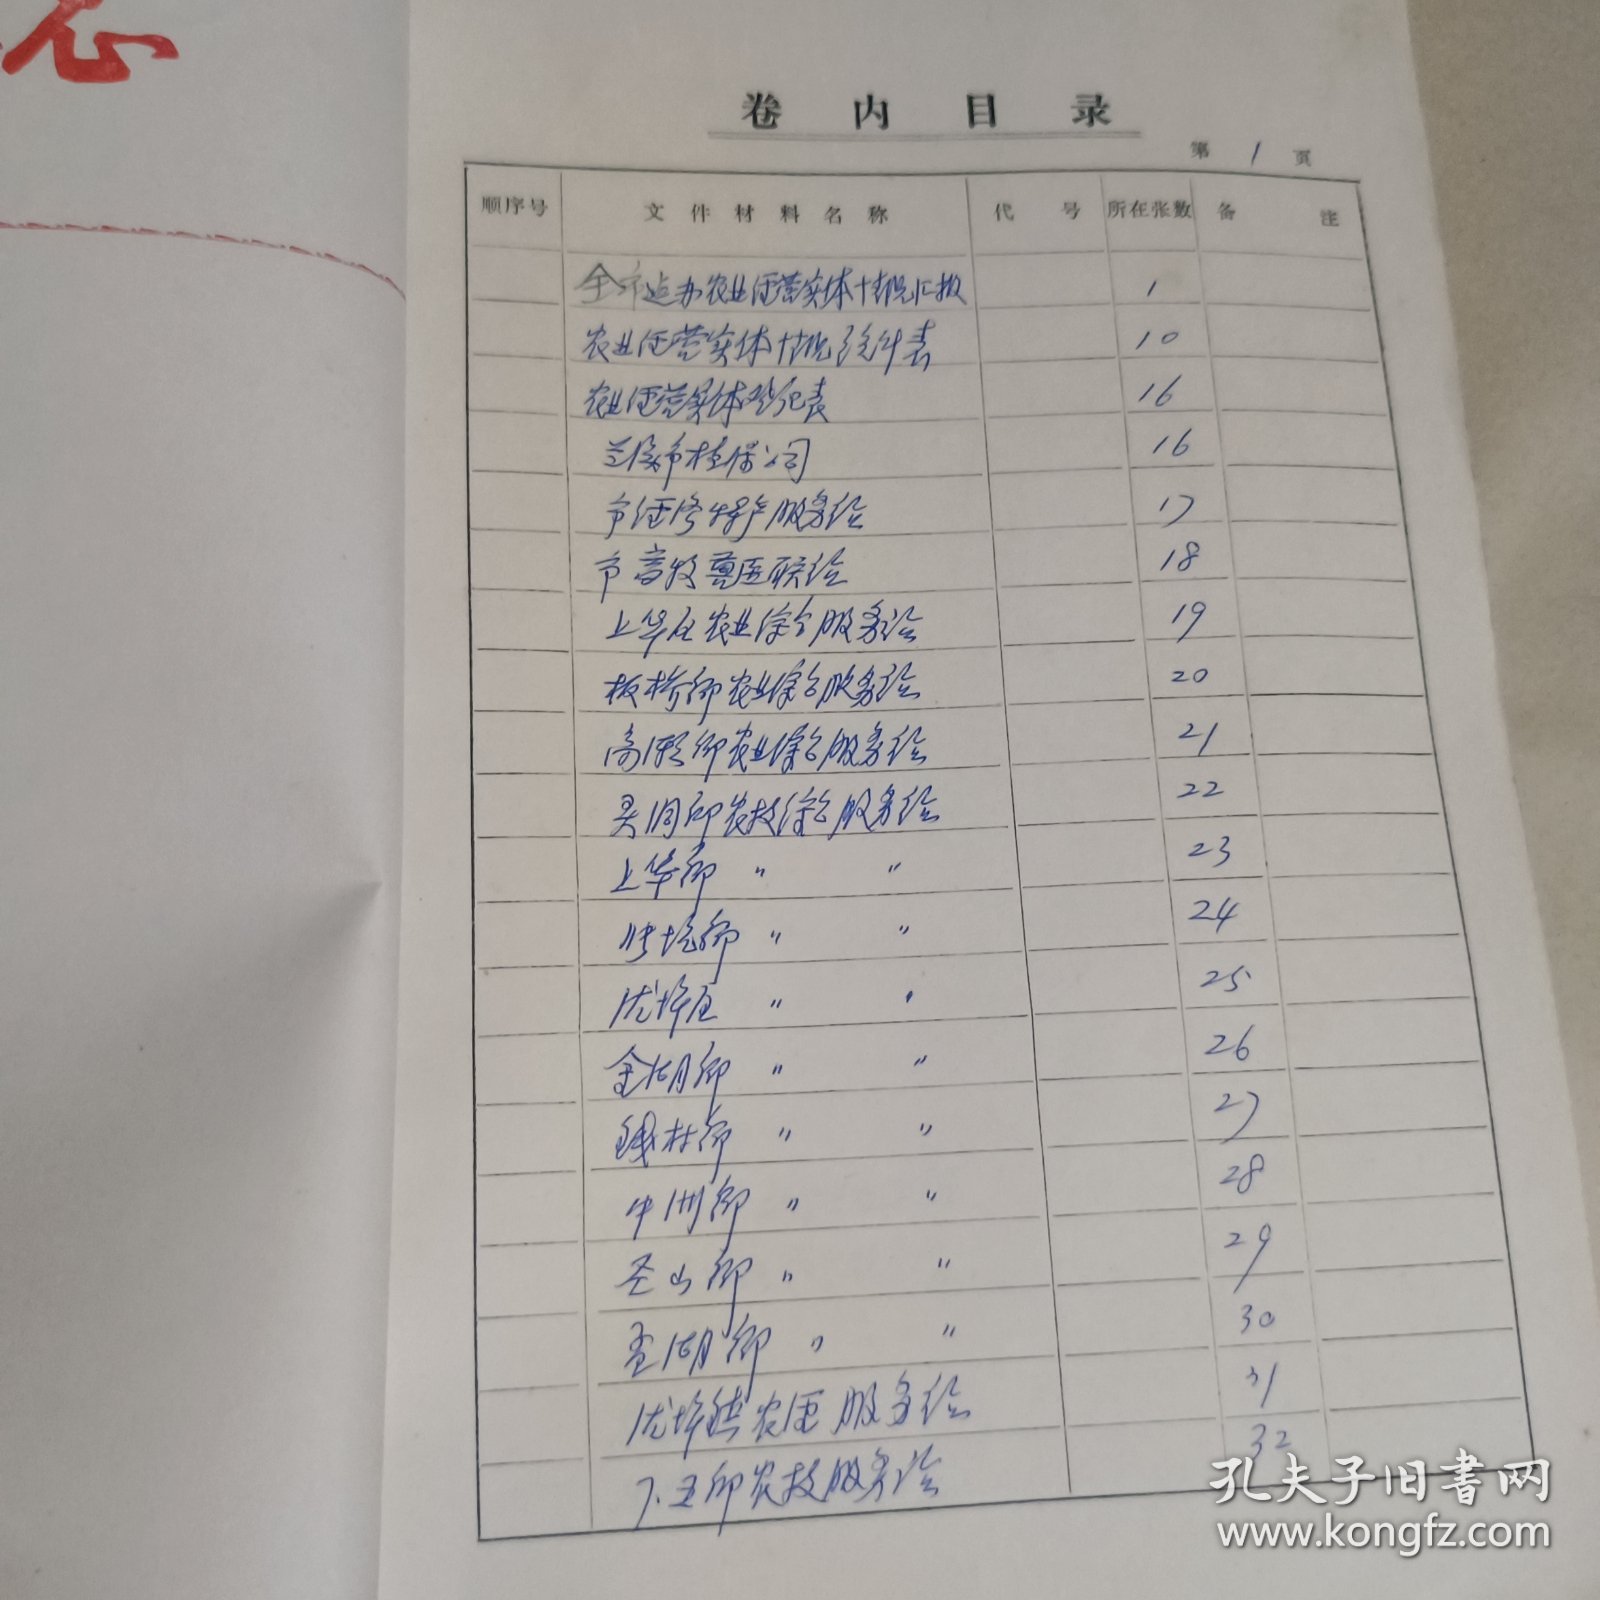 卷内目录
第 1 页
顺序号 文件材料名称 代号 所在张数 备注
全市站办农业经营实体情况汇报 1
农业经营实体情况统计表 10
农业经营实体登记表 16
兰溪市植保公司 16
市经济特产服务站 17
市畜牧兽医联站 18
上华区农业综合服务站 19
板桥乡农业综合服务站 20
乡农业综合服务站 21
灵洞乡农技综合服务站 22
上华乡 〃 〃 23
坑乡 〃 〃 24
优埠区 〃 〃 25
金湖乡 〃 〃 26
钱村乡 〃 〃 27
中洲乡 〃 〃 28
圣山乡 〃 〃 29
孟湖乡 〃 〃 30
优埠镇农经服务站 31
下王乡农技服务站 32
孔夫子旧书网
www.kongfz.com